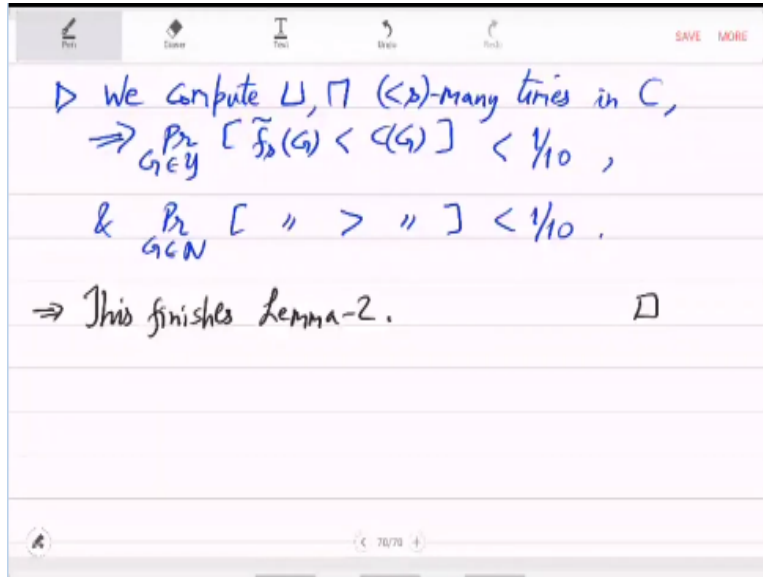 Pen Eraser Text Undo Redo SAVE MORE
▷ We compute ⊔, ⊓ (<s)-many times in C,
⇒ Pr_{G∈Y} [ f̃_s(G) < C(G) ] < 1/10 ,
& Pr_{G∈N} [ " > " ] < 1/10 .
⇒ This finishes Lemma-2. □
< 70/70 +